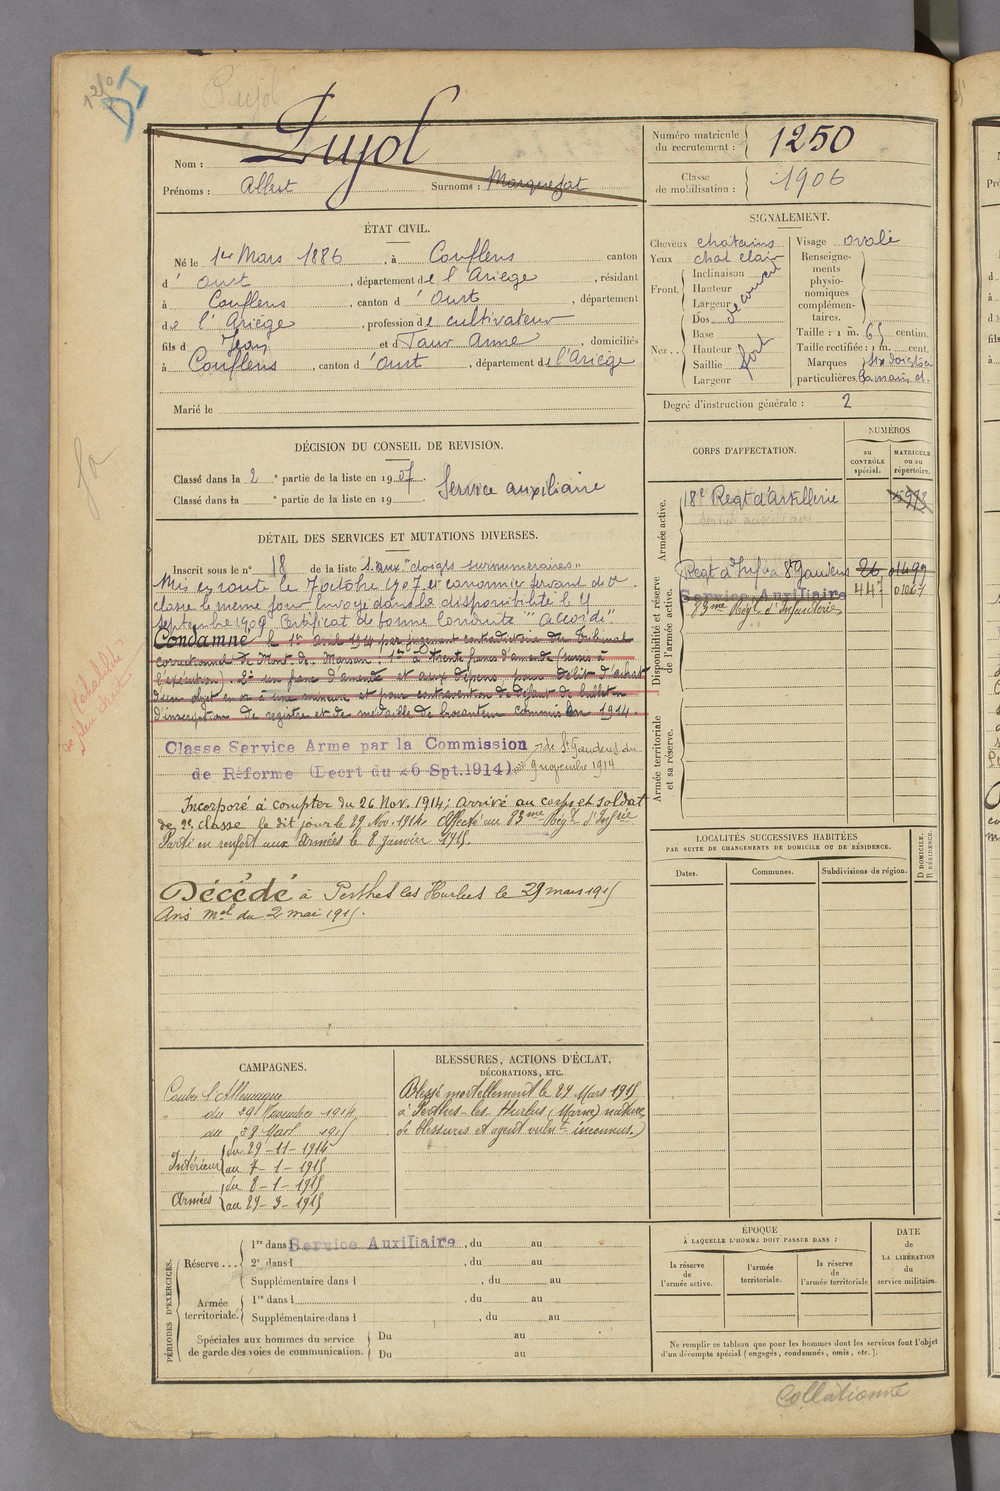 Pujol
Nom : Pujol
Prénoms : Albert Surnoms : Marquefat
Numéro matricule du recrutement : 1250
Classe de mobilisation : 1906
ÉTAT CIVIL.
Né le 1er Mars 1886, à Couflens canton
d' Oust, département de l'Ariège, résidant
à Couflens, canton d'Oust, département
de l'Ariège, profession de cultivateur
fils d Jean et d Taur Anne, domiciliés
à Couflens, canton d'Oust, département de l'Ariège
Marié le
SIGNALEMENT.
Cheveux chatains
Yeux chat clair
Front. Inclinaison
Hauteur
Largeur
Nez. . Dos
Base
Hauteur fort
Saillie
Largeur
Visage ovale
Renseignements physionomiques complémentaires.
Taille : 1 m. 65 centim.
Taille rectifiée : 1 m. cent.
Marques particulières Six doigts à la main
Degré d'instruction générale : 2
DÉCISION DU CONSEIL DE REVISION.
Classé dans la 2e partie de la liste en 1907. Service auxiliaire
Classé dans la e partie de la liste en 19
DÉTAIL DES SERVICES ET MUTATIONS DIVERSES.
Inscrit sous le n° 18 de la liste S. aux "doigts surnuméraires"
Mis en route le 7 octobre 1907 et canonnier servant de 2e
classe le même jour. Envoyé dans la disponibilité le 11
septembre 1909. Certificat de bonne conduite "Accordé"
Condamné le 1er Avril 1914 par jugement contradictoire du Tribunal
correctionnel de Mont-de-Marsan : 1° à trente francs d'amende (sursis à
l'exécution). 2° un franc d'amende et aux dépens pour délit d'achat
d'un objet en or à une mineure et pour contravention de défaut de bulletin
d'inscription de registre et de médaille de brocanteur commis en 1914.
Classe Service Arme par la Commission de St Gaudens du
de Réforme (Decrt du 26 Spt. 1914) 9 novembre 1914
Incorporé à compter du 26 Nov. 1914; arrivé au corps et soldat
de 2e classe le dit jour le 29 Nov. 1914. Affecté au 83me Régt d'Infie
Parti en renfort aux Armées le 8 Janvier 1915.
Décédé à Perthes les Hurlus le 29 mars 1915
Avis mel du 2 mai 1915.
CORPS D'AFFECTATION.
NUMÉROS
au CONTRÔLE spécial.
MATRICULE ou au répertoire.
Armée active.
18e Regt d'Artillerie
Disponibilité et réserve de l'armée active.
Regt d'Infie St Gaudens 26 01499
Service Auxiliaire 447 01067
83me Régt d'Infanterie
Armée territoriale et sa réserve.
LOCALITÉS SUCCESSIVES HABITÉES
PAR SUITE DE CHANGEMENTS DE DOMICILE OU DE RÉSIDENCE.
Dates.
Communes.
Subdivisions de région.
D DOMICILE. R RÉSIDENCE.
CAMPAGNES.
Contre l'Allemagne
du 29 Novembre 1914
au 29 Mars 1915
Intérieur du 29-11-1914
au 7-1-1915
Armées du 8-1-1915
au 29-3-1915
BLESSURES, ACTIONS D'ÉCLAT,
DÉCORATIONS, ETC.
Blessé mortellement le 29 Mars 1915
à Perthes-les-Hurlus (Marne) nature
de blessures et agent vulnt inconnus.)
PÉRIODES D'EXERCICES.
Réserve . . . 1re dans l Service Auxiliaire, du au
2e dans l , du au
Supplémentaire dans l , du au
Armée territoriale. 1re dans l , du au
Supplémentaire dans l , du au
Spéciales aux hommes du service de garde des voies de communication. Du au
Du au
ÉPOQUE
À LAQUELLE L'HOMME DOIT PASSER DANS :
la réserve de l'armée active.
l'armée territoriale.
la réserve de l'armée territoriale
DATE de LA LIBÉRATION du service militaire.
Ne remplir ce tableau que pour les hommes dont les services font l'objet
d'un décompte spécial (engagés, condamnés, omis, etc.).
Collationné